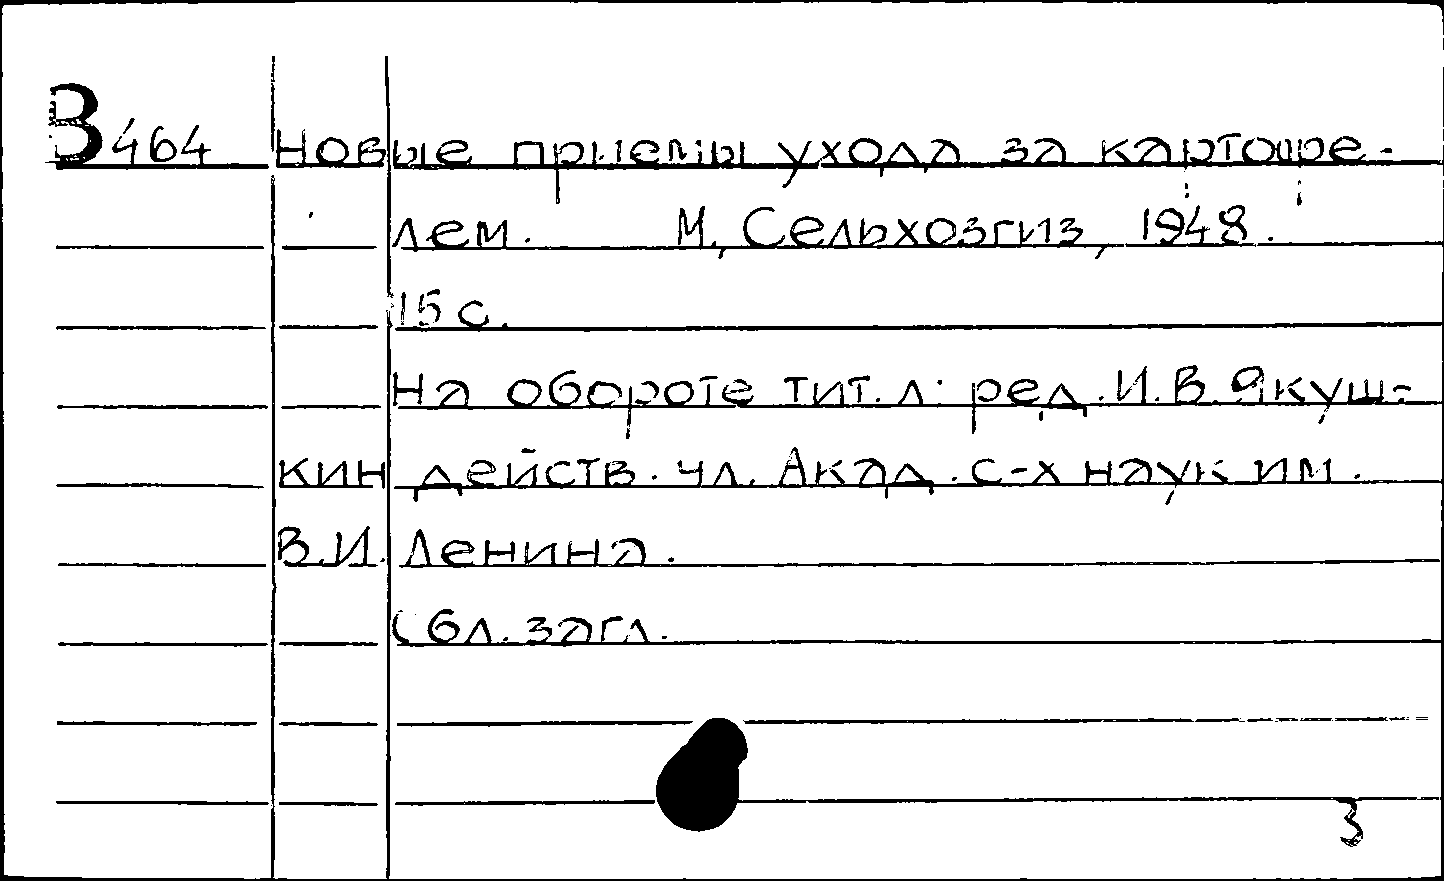 В464 Новые приемы ухода за картофе-
лем. М., Сельхозгиз, 1948.
15 с.
На обороте тит. л: ред. И.В. Якуш-
кин действ. чл. Акад. с-х наук им.
В.И. Ленина.
Обл. загл.
3